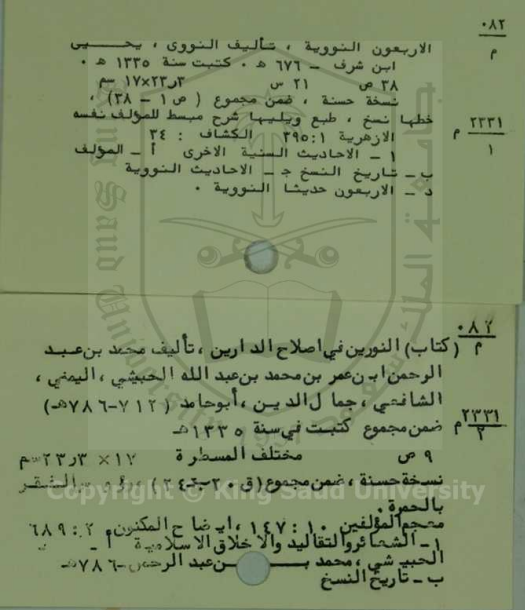 ٠٨٢
م
الاربعون النووية ، تأليف النووى ، يحـــيى
ابن شرف – ٦٧٦ ه ٠ كتبت سنة ١٣٣٥ ه ٠
٣٨ ص ٢١ س ٢٣٫٣×١٧ سم
نسخة حسنة ، ضمن مجموع ( ص ١ – ٣٨) ،
خطها نسخ ، طبع ويليها شرح مبسط للمؤلف نفسه
٢٢٣١
١ م
الازهرية ١: ٣٩٥ الكشاف : ٣٤
١ – الاحاديث السنية الاخرى أ – المؤلف
ب – تاريخ النسخ ج – الاحاديث النووية
د – الاربعون حديثا النووية ٠
٠٨٢
م
(كتاب) النورين في اصلاح الدارين ، تأليف محمد بن عبد
الرحمن ابن عمر بن محمد بن عبد الله الحبيشي ، اليمني ،
الشافعي ، جمال الدين ، أبو حامد (٧١٢-٧٨٦هـ)
٢٢٣١
٢ م
ضمن مجموع كتبت في سنة ١٣٣٥هـ
٩ ص مختلف المسطرة ١٧× ٢٣٫٣سم
نسخة حسنة ، ضمن مجموع (ق
بالحمرة .
معجم المؤلفين ١٠: ١٤٧ ، ايضاح المكنون ٢: ٦٨٩
١- الشعائر والتقاليد والاخلاق الاسلامية أ -
الحبيشي ، محمد بــن عبد الرحمن -٧٨٦هـ
ب - تاريخ النسخ
جامعة الملك سعود
King Saud University
1957
Copyright © King Saud University